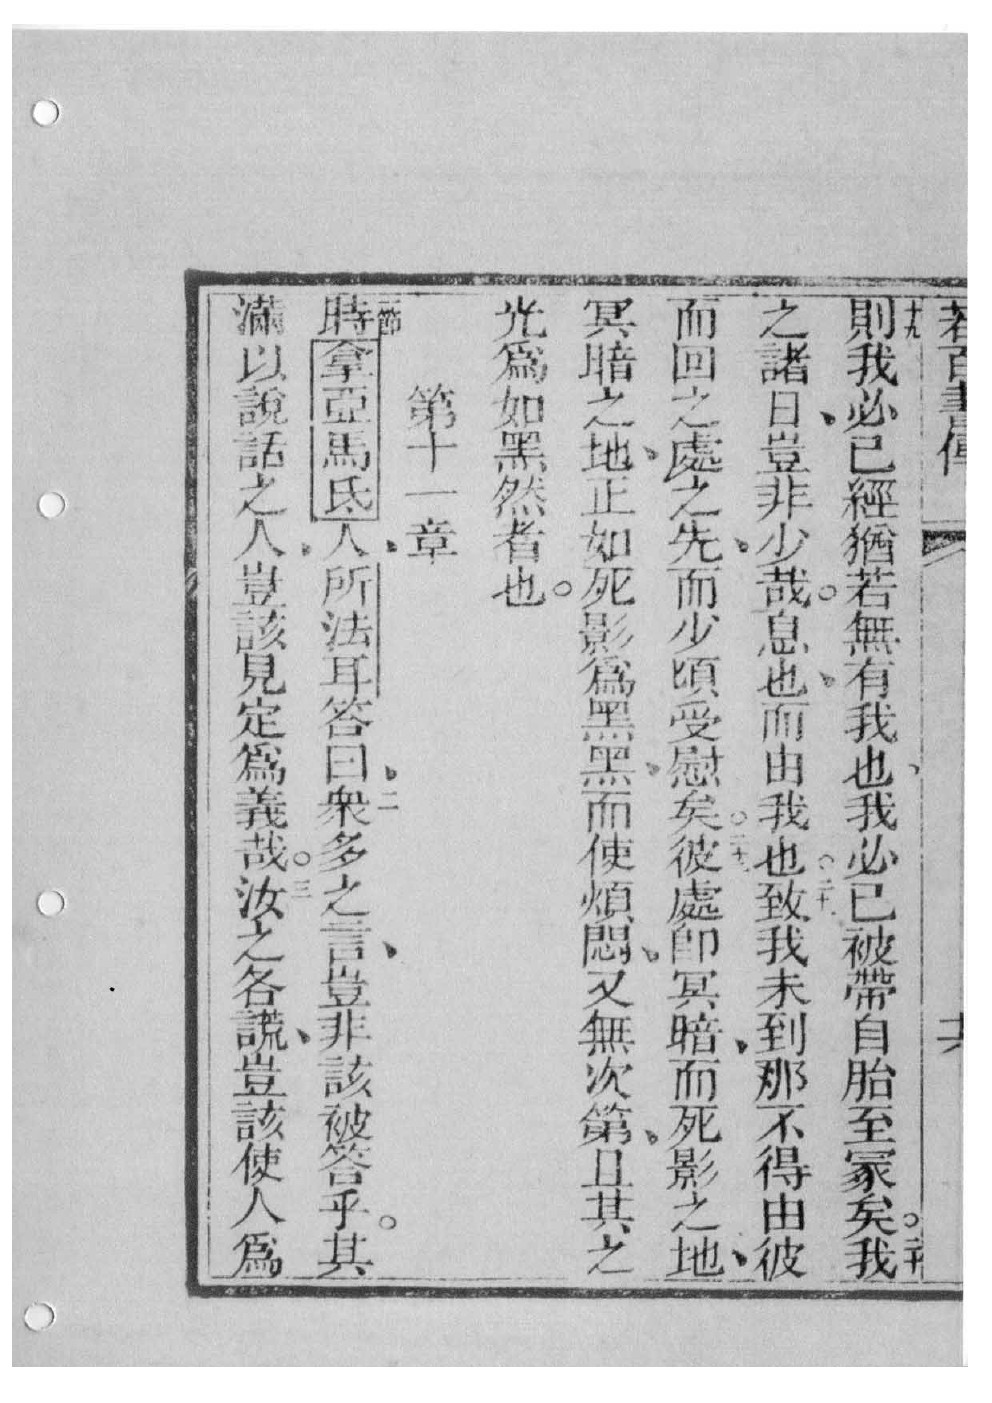 若百書傳 共
十九則我必已經猶若無有我也、我必已被帶自胎至冢矣。二十我
之諸日、豈非少哉。息也、而由我也。二十致我未到那不得由彼
而回之處之先、而少頃受慰矣。二十一彼處卽冥暗、而死影之地、
冥暗之地、正如死影爲黑黑、而使煩悶、又無次第、且其之
光爲如黑然者也。
第十一章
一節時拿亞馬氐人、所法耳答曰、二衆多之言、豈非該被答乎。其
滿以說話之人、豈該見定爲義哉。三汝之各謊、豈該使人爲